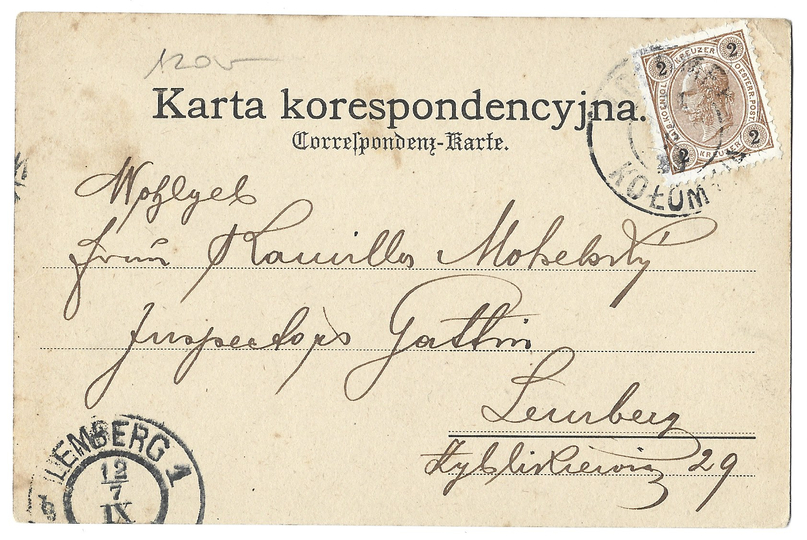 120
Karta korespondencyjna.
Correspondenz-Karte.
2 KREUZER 2
2 KREUZER 2
KOŁOM
Wohlgeb
Frau Kamilla Mokelsky
Inspectors Gattin
Lemberg
29
LEMBERG 1
12
7
IX